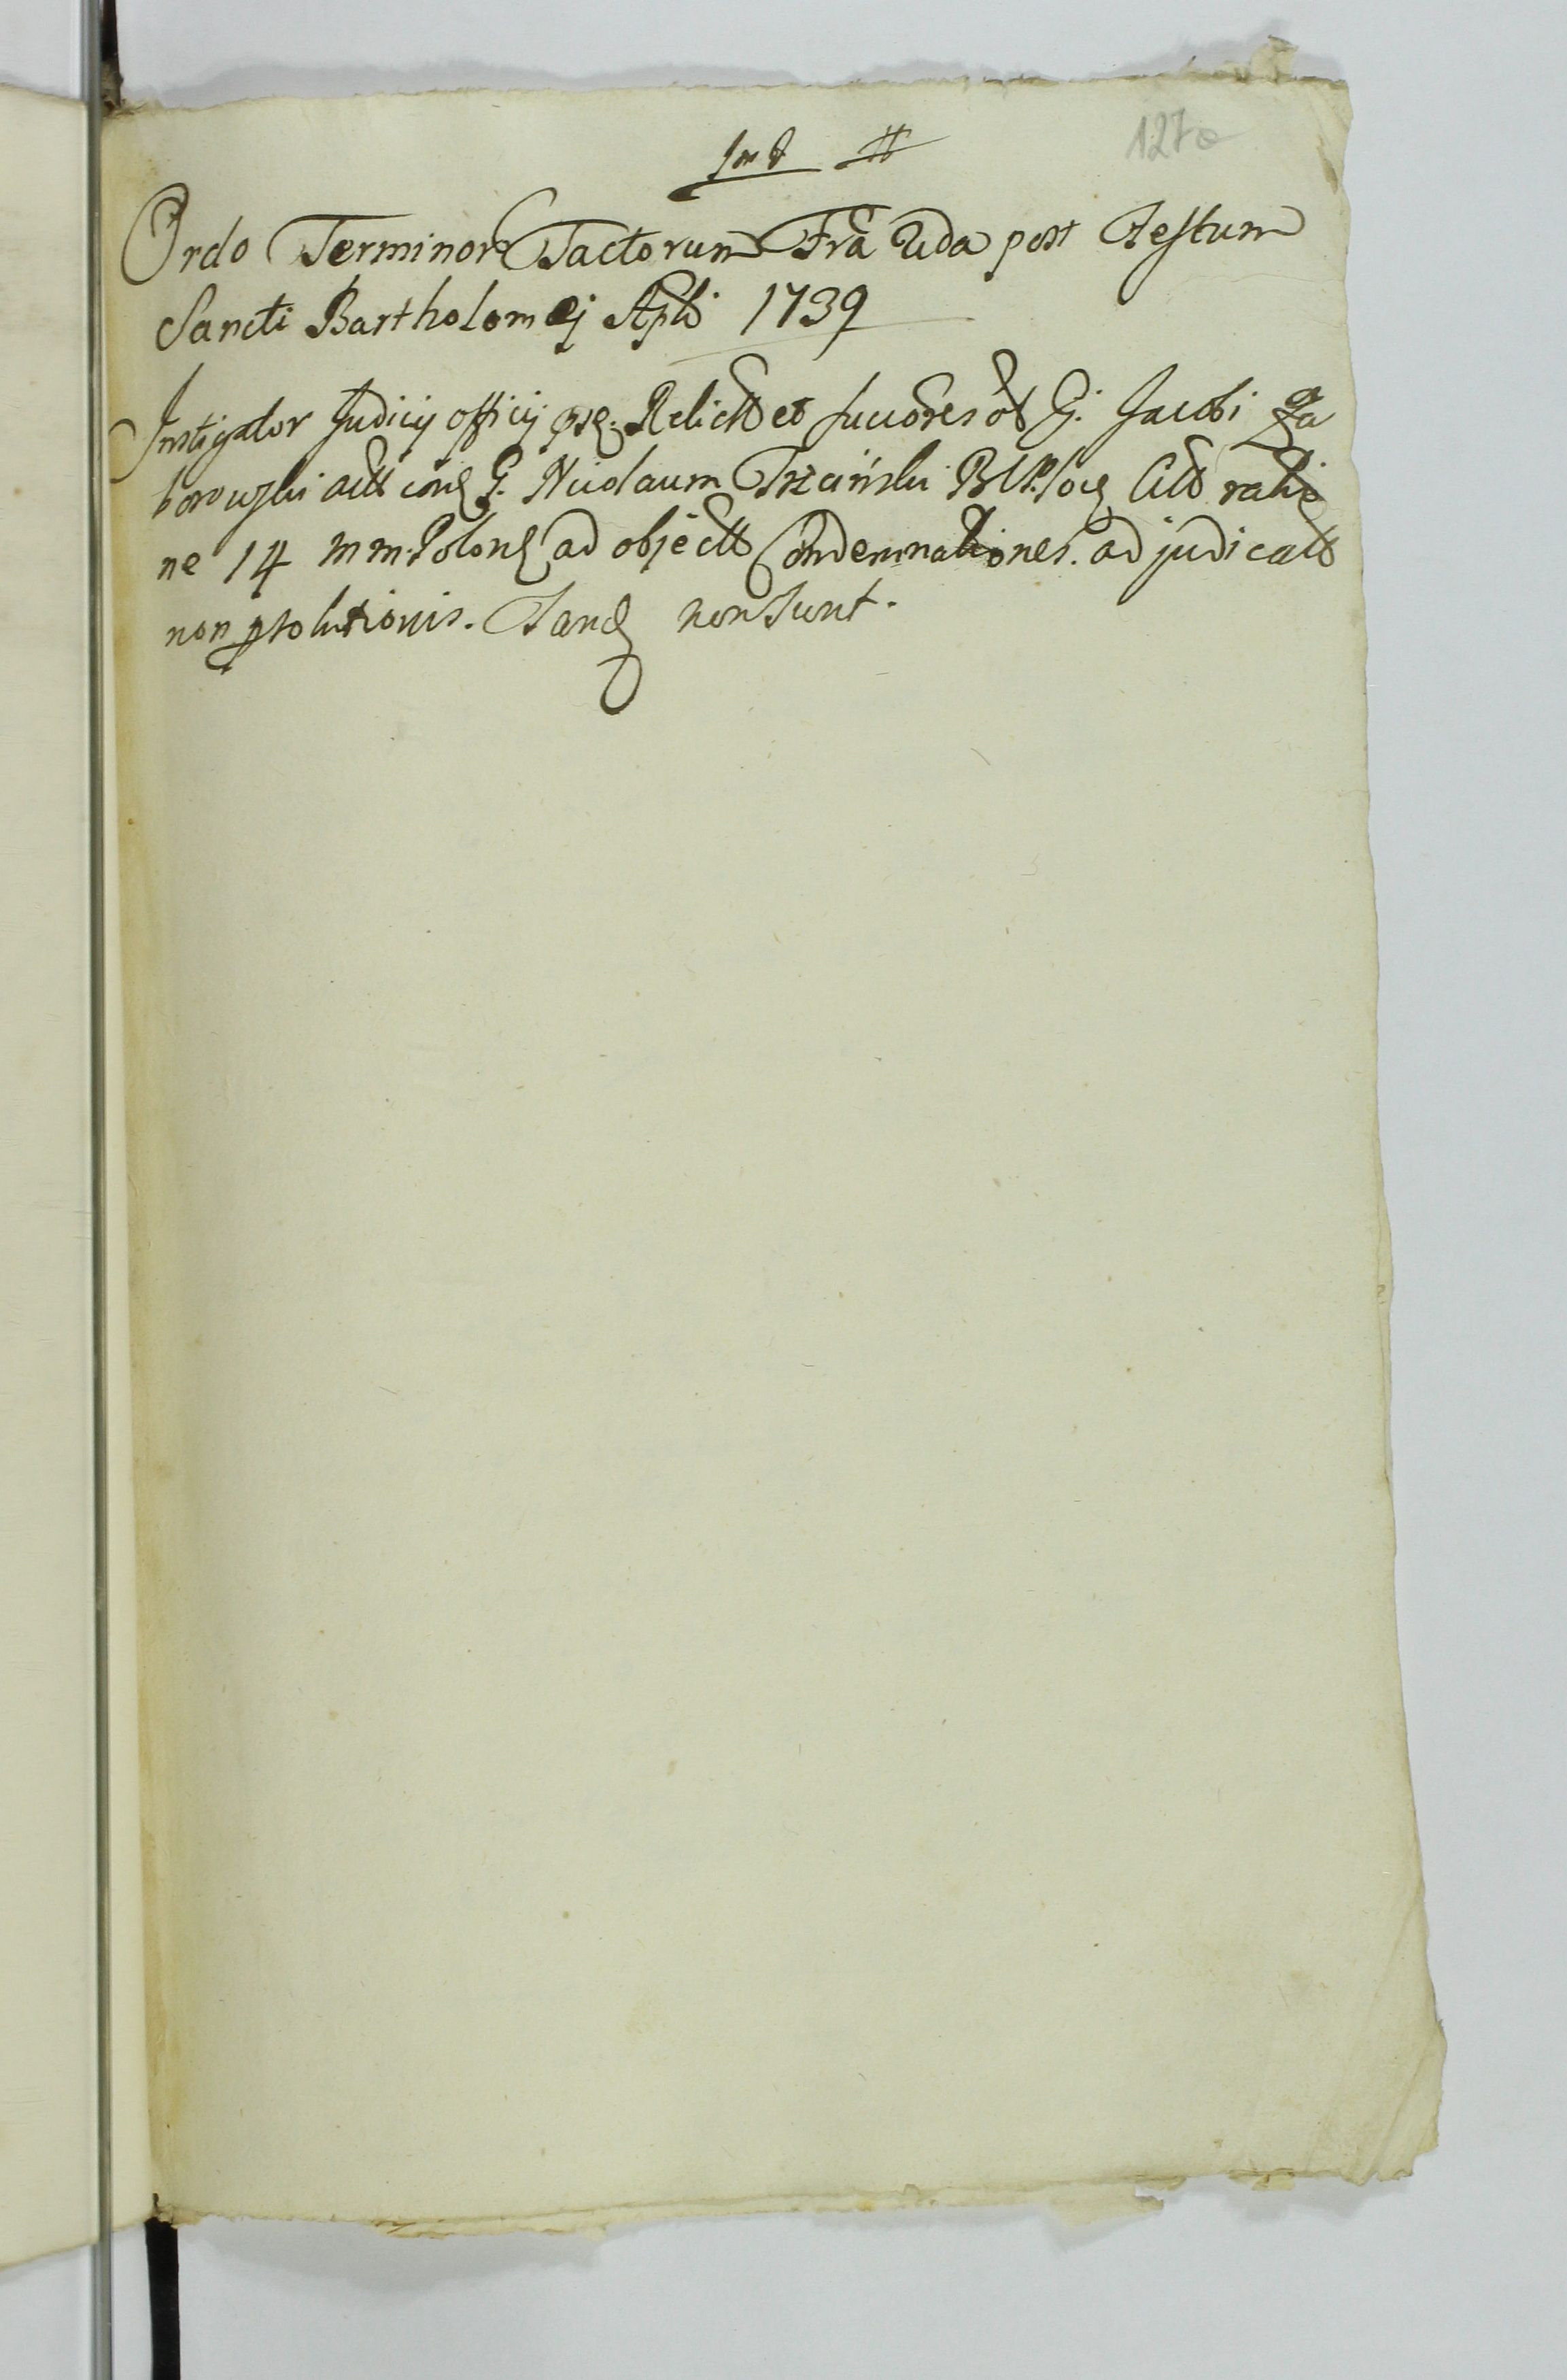 127a
Ordo Terminor Tactorum Fra 2da post Festum
Sancti Bartholomej Apli 1739
Instigator Judicij officij Relict et succores G. Jacobi Za
borowski act G. Nicolaum Trzciński ratio
ne 14 mm. Polon ad object Condemnationes. ad judicatt
non psolutionis. Tand non sunt.